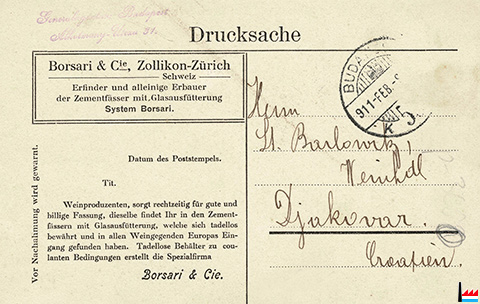 Drucksache
Borsari & Cie, Zollikon-Zürich
Schweiz
Erfinder und alleinige Erbauer
der Zementfässer mit Glasausfütterung
System Borsari.
BUDA
911 FEB
K 5
Herrn
St. Barlowik,
Weinhdl
Djakovar.
Croatien.
Vor Nachahmung wird gewarnt.
Datum des Poststempels.
Tit.
Weinproduzenten, sorgt rechtzeitig für gute und
billige Fassung, dieselbe findet Ihr in den Zement-
fässern mit Glasausfütterung, welche sich tadellos
bewährt und in allen Weingegenden Europas Ein-
gang gefunden haben. Tadellose Behälter zu cou-
lanten Bedingungen erstellt die Spezialfirma
Borsari & Cie.